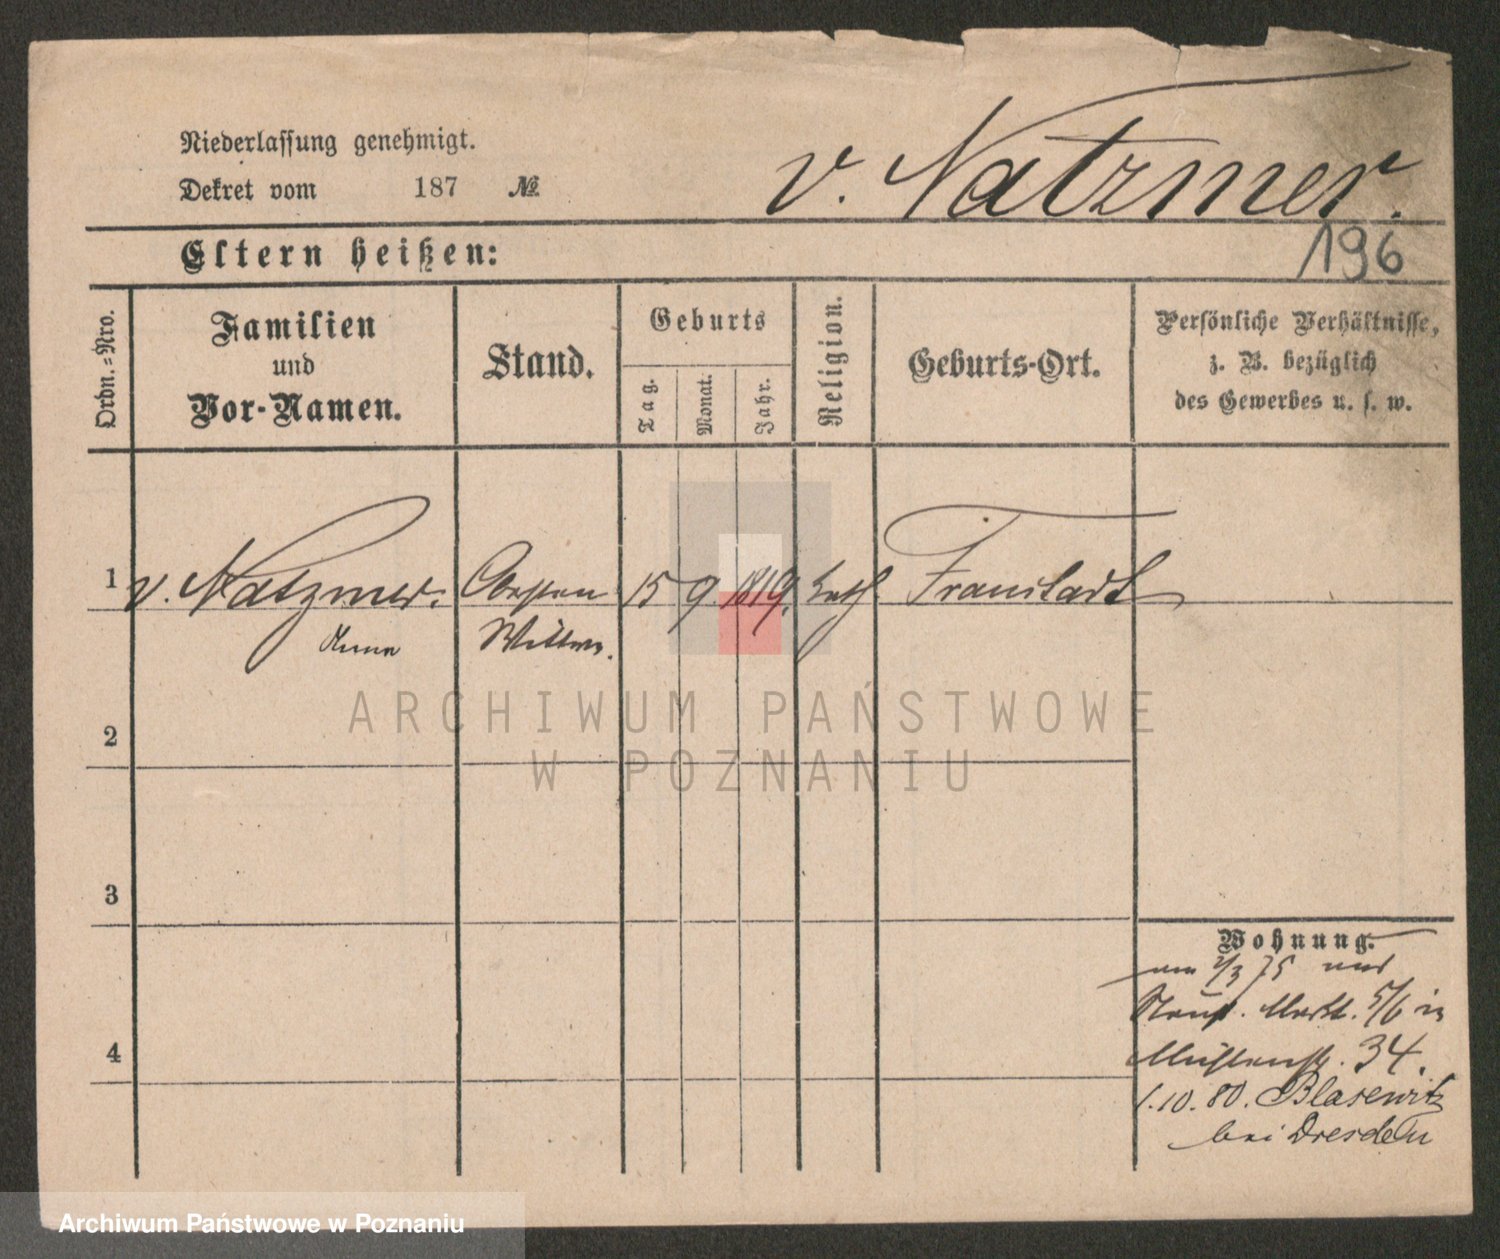 Niederlassung genehmigt.
Dekret vom 187 №
v. Natzmer.
196
Eltern heißen:
Ordn.-Nro.
Familien
und
Vor-Namen.
Stand.
Geburts
Tag.
Monat.
Jahr.
Religion.
Geburts-Ort.
Persönliche Verhältnisse,
z. B. bezüglich
des Gewerbes u. s. w.
1 v. Natzmer. 15 9 1819. Fraustadt
Wittwe.
2
3
4
Wohnung.
2/3 75
Markt. 5/6 in
34.
1.10.80. Blasewitz
bei Dresden
ARCHIWUM PAŃSTWOWE
W POZNANIU
Archiwum Państwowe w Poznaniu